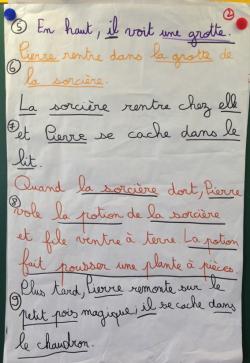 ② 
⑤ En haut, il voit une grotte.
Pierre rentre dans la grotte de
⑥ la sorcière.
La sorcière rentre chez elle
⑦ et Pierre se cache dans le
lit.
Quand la sorcière dort, Pierre
⑧ vole la potion de la sorcière
et file ventre à terre. La potion
fait pousser une plante à pièces.
Plus tard, Pierre remonte sur le
⑨ petit pois magique, il se cache dans
le chaudron.